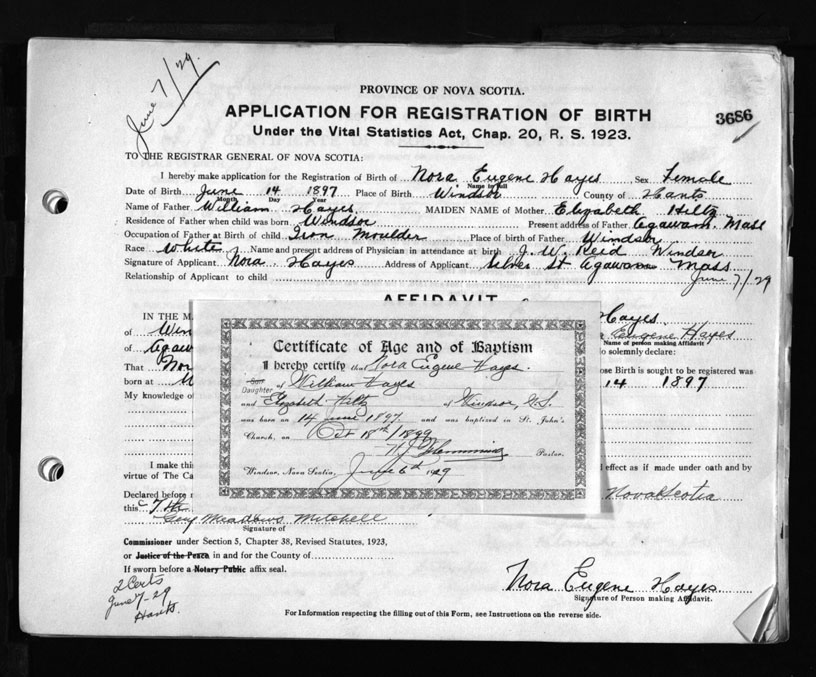 June 7/29.
PROVINCE OF NOVA SCOTIA.
APPLICATION FOR REGISTRATION OF BIRTH
3686
Under the Vital Statistics Act, Chap. 20, R. S. 1923.
TO THE REGISTRAR GENERAL OF NOVA SCOTIA:
I hereby make application for the Registration of Birth of Nora Eugene Hayes Sex Female
Name in full
Date of Birth June 14 1897 Place of Birth Windsor County of Hants
Month Day Year
Name of Father William Hayes MAIDEN NAME of Mother Elizabeth Hiltz
Residence of Father when child was born Windsor Present address of Father Agawam, Mass
Occupation of Father at Birth of child Iron Moulder Place of birth of Father Windsor
Race White Name and present address of Physician in attendance at birth J. W. Reid Windsor
Signature of Applicant Nora Hayes Address of Applicant Silver St Agawam Mass
Relationship of Applicant to child June 7/29
AFFIDAVIT
IN THE MA Hayes
of Win Eugene Hayes
Name of person making Affidavit
of Agaw do solemnly declare:
That Nor ose Birth is sought to be registered was
born at 14 1897
My knowledge o
Certificate of Age and of Baptism
I hereby certify that Nora Eugene Hayes.
Son
Daughter of William Hayes
and Elizabeth Hiltz of Windsor, N.S.
was born on 14 June 1897 and was baptized in St. John's
Church, on Oct 18th/1899
Pastor.
Windsor, Nova Scotia, June 6th 1929
I make thi d effect as if made under oath and by
virtue of The Ca
Declared before Nova Scotia
this 7th
Guy Meadows Mitchell
Signature of
Commissioner under Section 5, Chapter 38, Revised Statutes, 1923,
or Justice of the Peace in and for the County of
If sworn before a Notary Public affix seal.
2 Certs
June 7-29
Hants
Nora Eugene Hayes.
Signature of Person making Affidavit.
For Information respecting the filling out of this Form, see Instructions on the reverse side.